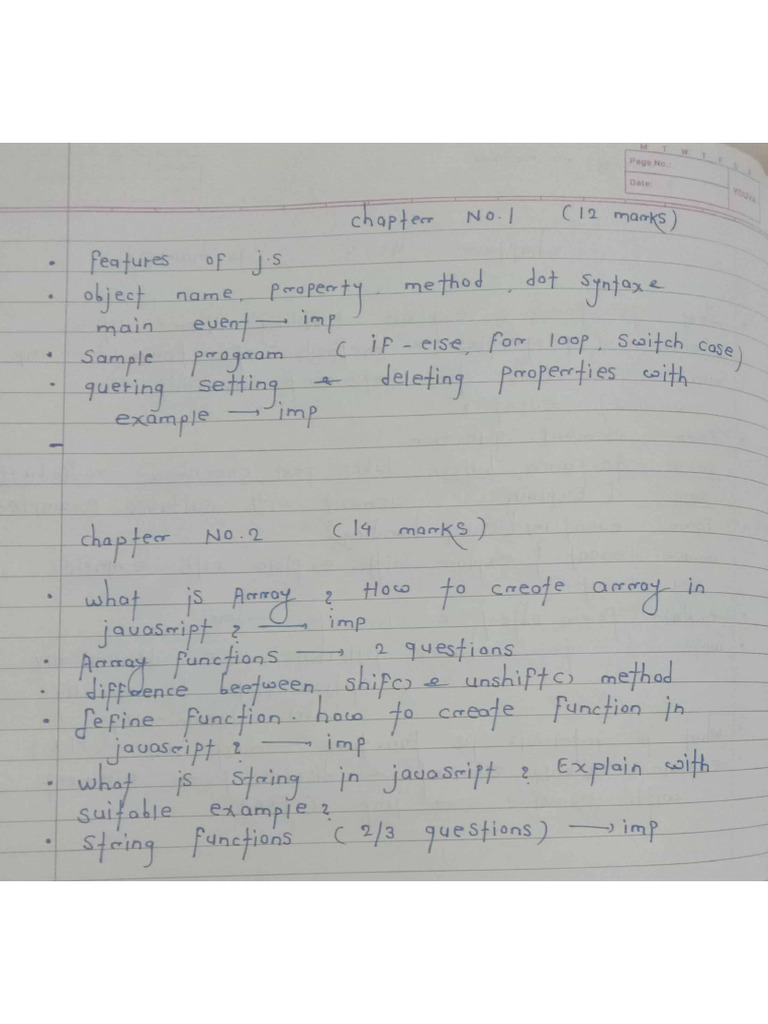 M T W T F S S
Page No.:
Date:
YOUVA
chapter No.1 (12 marks)
• features of j.s
• object name, property, method, dot syntaxe
main event → imp
• sample program ( if-else, for loop, switch case)
• quering setting & deleting properties with
example → imp
–
chapter No.2 (14 marks)
• what is Array ? How to create array in
javascript ? → imp
• Array functions → 2 questions
• diffdence beetween shif() & unshift() method
• fefine function. how to create function in
javascript ? → imp
• what is string in javascript ? Explain with
suitable example ?
• string functions ( 2/3 questions) → imp